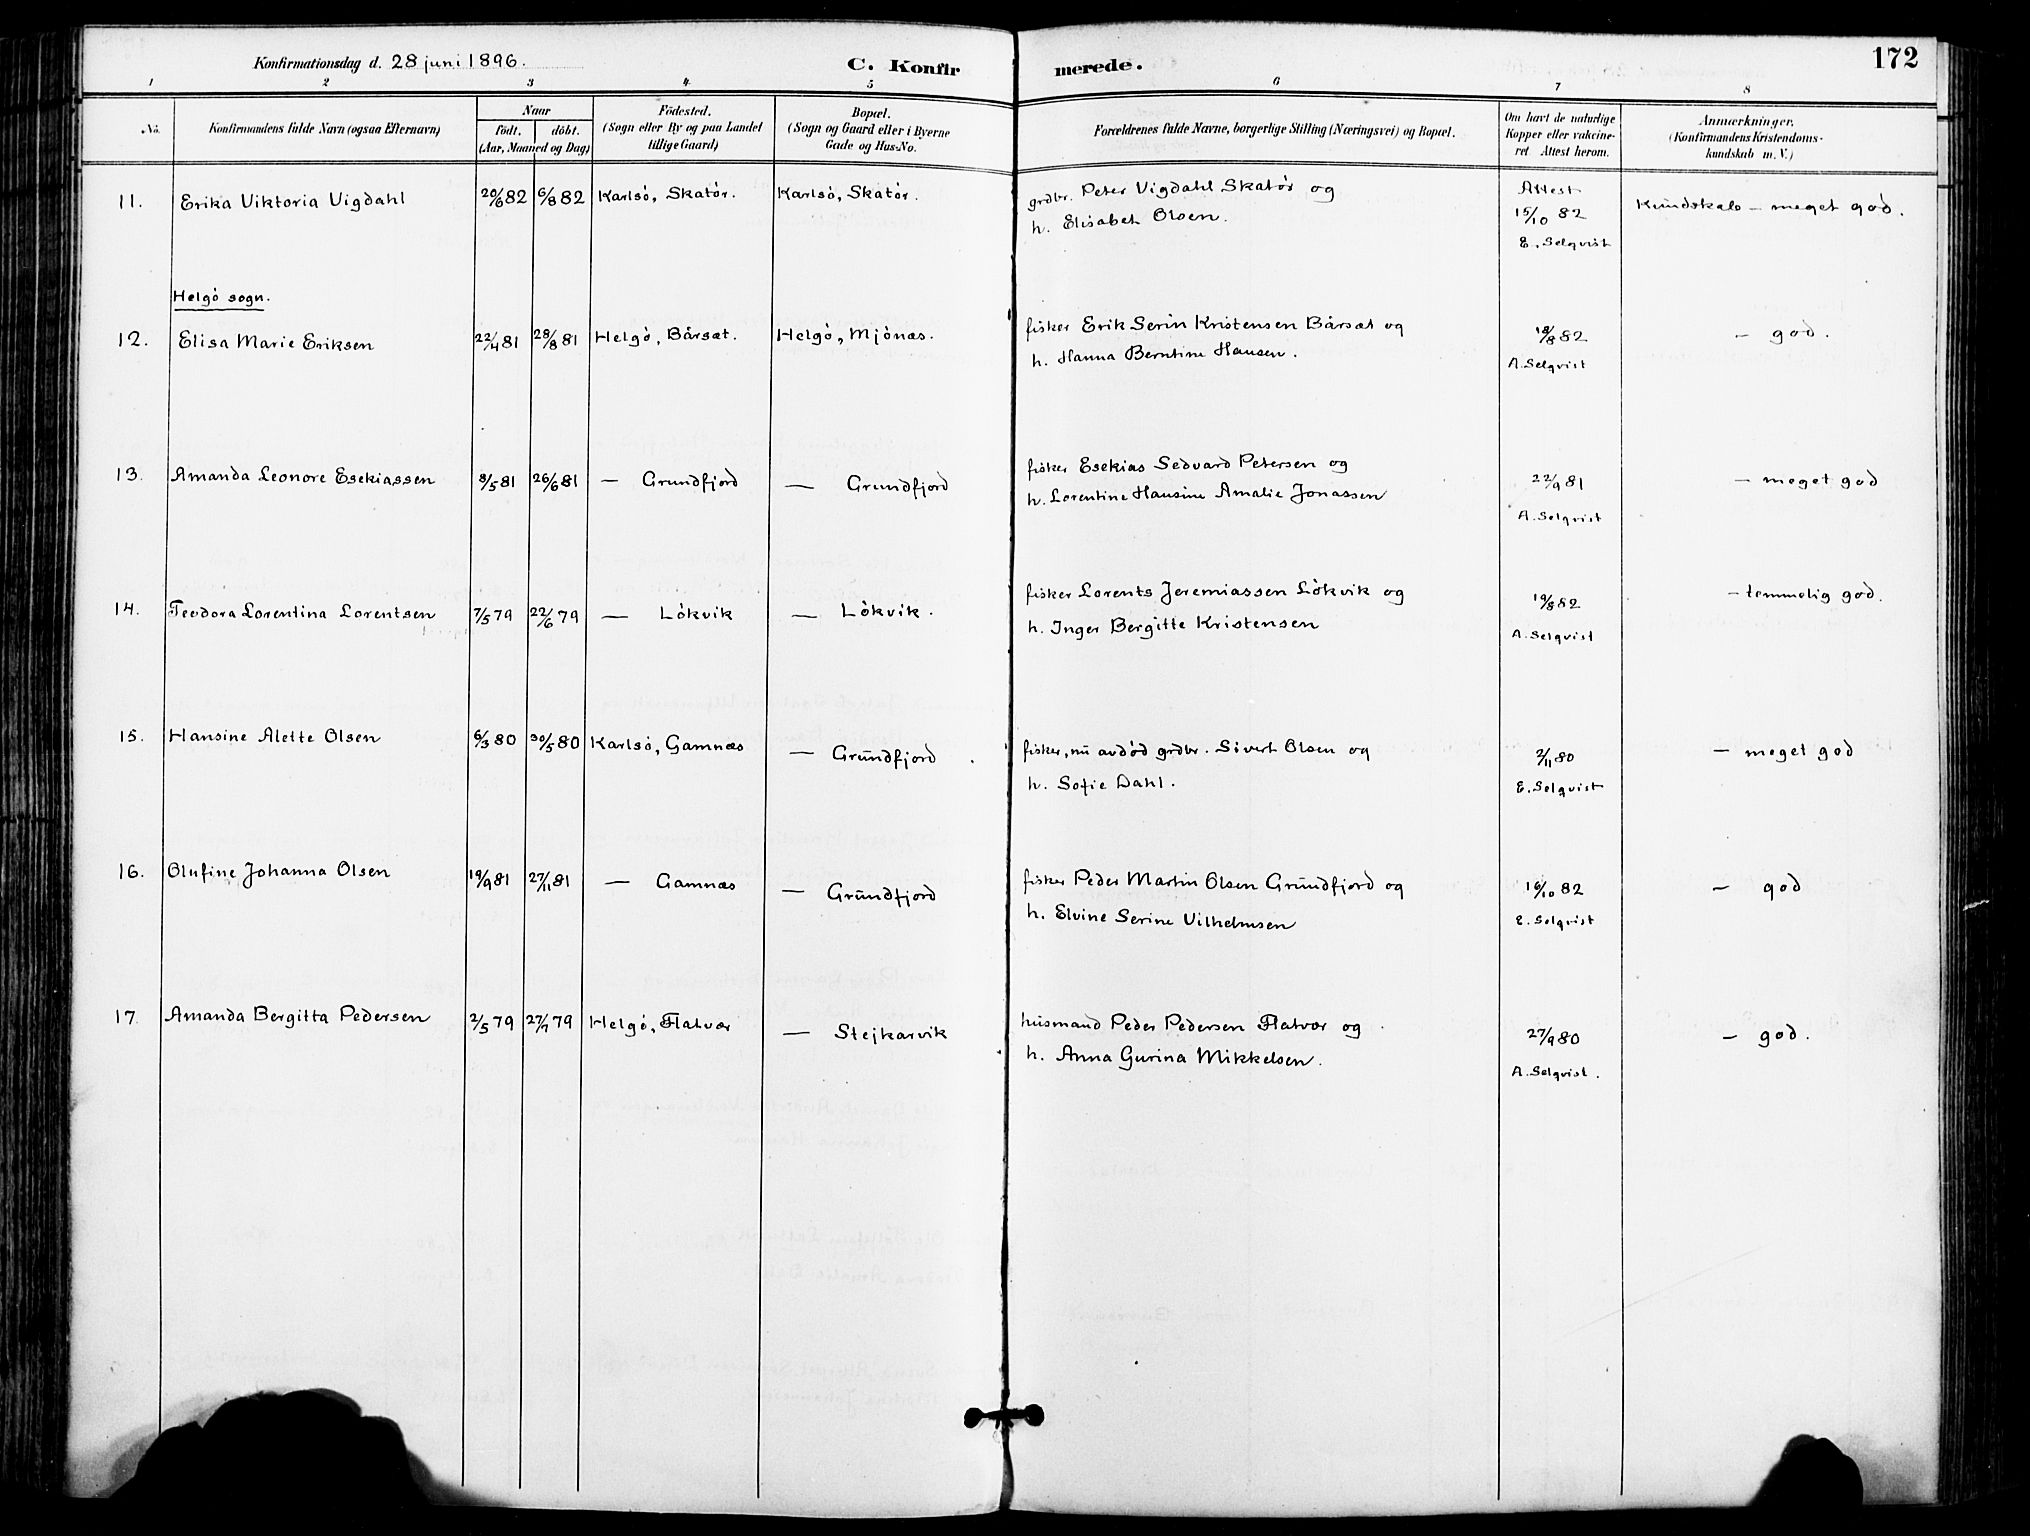 Konfirmationsdag d. 28 juni 1896.
C. Konfirmerede.
172
1 2 3 4 5 6 7 8
No.
Konfirmandens fulde Navn (ogsaa Efternavn)
Naar
födt. döbt.
(Aar, Maaned og Dag)
Födested.
(Sogn eller By og paa Landet
tillige Gaard)
Bopæl.
(Sogn og Gaard eller i Byerne
Gade og Hus-No.
Forældrenes fulde Navne, borgerlige Stilling (Næringsvei) og Bopæl.
Om havt de naturlige
Kopper eller vakcine-
ret Attest herom.
Anmærkninger.
(Konfirmandens Kristendoms-
kundskab m. V.)
11. Erika Viktoria Vigdahl 20/6 82 6/8 82 Karlsö, Skatör. Karlsö, Skatör. grdbr. Peter Vigdahl Skatör og
h. Elisabet Olsen.
Attest
15/10 82
E. Selqvist
Kundskab – meget god.
Helgö sogn.
12. Elisa Marie Eriksen 22/4 81 28/8 81 Helgö, Bårsæt. Helgö, Mjönæs. fisker Erik Serin Kristensen Bårsæt og
h. Hanna Berntine Hansen.
18/8 82
A. Selqvist
– god.
13. Amanda Leonore Esekiassen 8/5 81 26/6 81 — Grundfjord — Grundfjord fisker Esekias Sedvard Petersen og
h. Lorentine Hansine Amalie Jonassen
22/9 81
A. Selqvist
– meget god
14. Teodora Lorentina Lorentsen 7/5 79 22/6 79 — Lökvik — Lökvik. fisker Lorents Jeremiassen Lökvik og
h. Inger Bergitte Kristensen
19/8 82
A. Selqvist
– temmelig god.
15. Hansine Alette Olsen 6/3 80 30/5 80 Karlsö, Gamnæs — Grundfjord fisker, nu avdöd grdbr. Sivert Olsen og
h. Sofie Dahl.
2/11 80
E. Selqvist
– meget god
16. Olufine Johanna Olsen 19/9 81 27/11 81 — Gamnæs — Grundfjord fisker Peder Martin Olsen Grundfjord og
h. Elvine Serine Vilhelmsen
16/10 82
E. Selqvist
– god
17. Amanda Bergitta Pedersen 2/5 79 27/7 79 Helgö, Flatvær — Stejkarvik husmand Peder Pedersen Flatvær og
h. Anna Gurina Mikkelsen.
27/9 80
A. Selqvist.
– god.